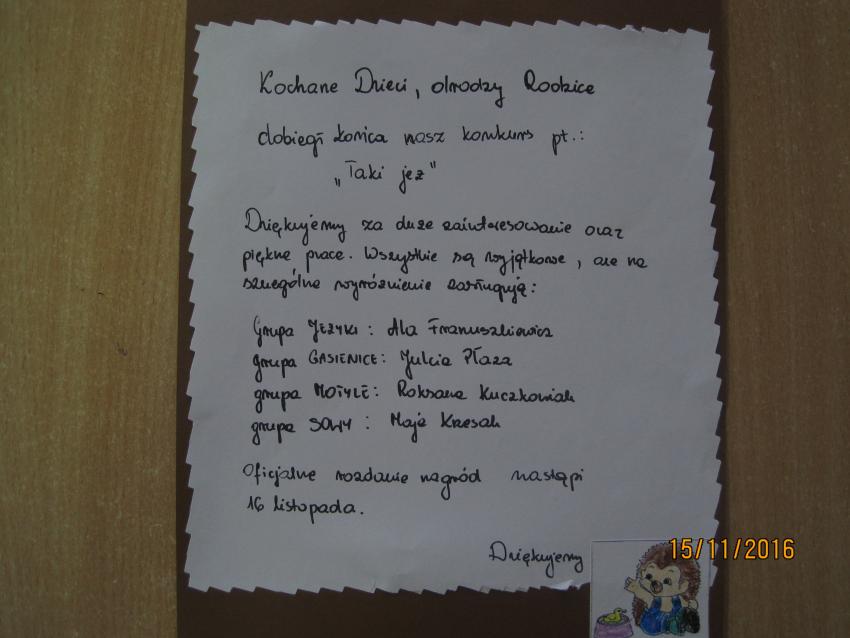 Kochane Dzieci, drodzy Rodzice
dobiegł końca nasz konkurs pt.:
„Taki jeż"
Dziękujemy za duże zainteresowanie oraz
piękne prace. Wszystkie są wyjątkowe, ale na
szczególne wyróżnienie zasługują:
Grupa JEŻYKI: Ala Franuszkiewicz
grupa GĄSIENICE: Julcia Płaza
grupa MOTYLE: Roksana Kuczkowiak
grupa SOWY: Maja Krzesak
Oficjalne rozdanie nagród nastąpi
16 listopada.
Dziękujemy
15/11/2016